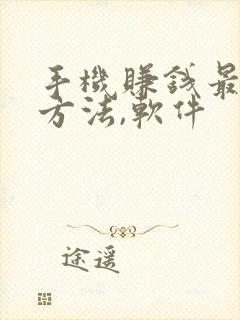 手機賺錢最
方法,軟件
途遥